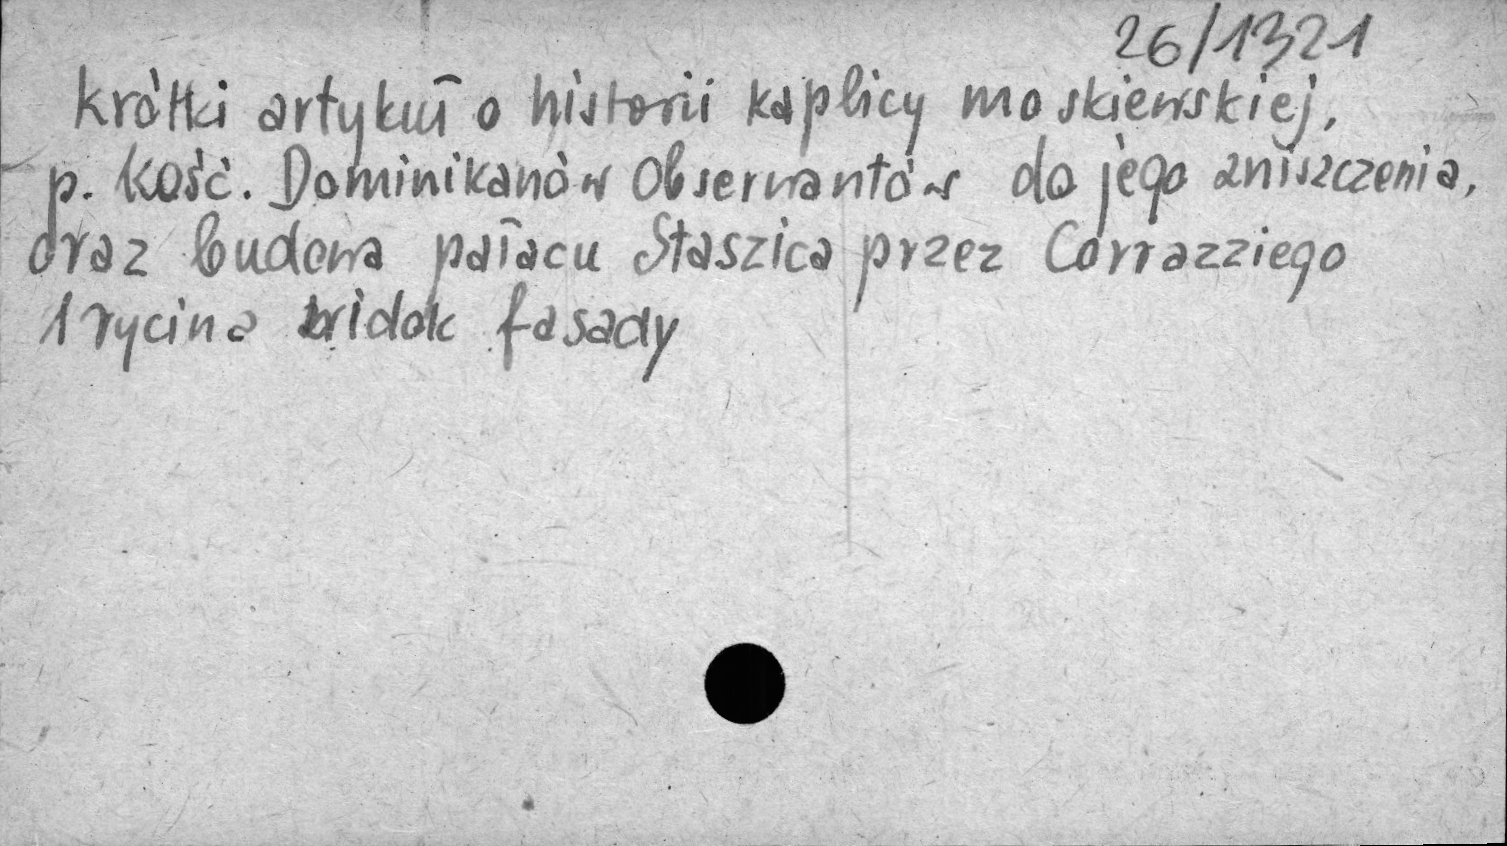 26/1321
krótki artykuł o historii kaplicy moskiewskiej,
p. kość. Dominikanów Obserwantów do jego zniszczenia,
oraz budowa pałacu Staszica przez Corrazziego
1 rycina widok fasady